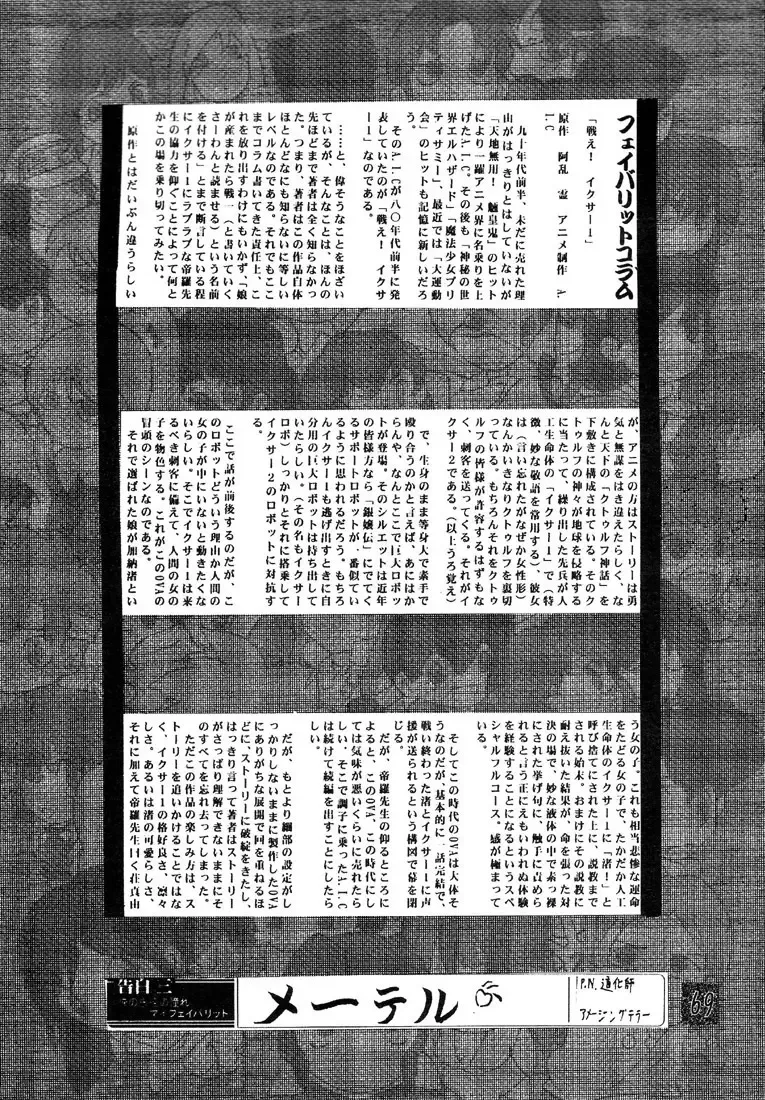 フェイバリットコラム
「戦え！　イクサー１」
原作　阿乱　霊　アニメ制作　A.
I.C
　九十年代前半、未だに売れた理
由がはっきりとはしていないが
「天地無用！　魎皇鬼」のヒット
により一躍アニメ界に名乗りを上
げたA.I.C。その後も「神秘の世
界エルハザード」「魔法少女プリ
ティサミー」、最近では「大運動
会」のヒットも記憶に新しいだろ
う。
　そのA.I.Cが八〇年代前半に発
表していたのが「戦え！　イクサ
ー１」なのである。
　……と、偉そうなことをほざい
ているが、そんなことは、ほんの
先ほどまで著者は全く知らなかっ
た。つまり、著者はこの作品自体
ほとんどなにも知らないに等しい
レベルなのである。それでもここ
までコラム書いてきた責任上、こ
れを放り出すわけにもいかず、「娘
が産まれたら戦一（と書いていく
さーわんと読ませる）という名前
を付ける」とまで断言している程
にイクサー１にラブラブな帝羅先
生の協力を仰ぐことによって何と
かこの場を乗り切ってみたい。
　原作とはだいぶん違うらしい
が、アニメの方はストーリーは勇
気と無謀をはき違えたらしく、な
んと天下の「クトゥルフ神話」を
下敷きに構成されている。そのク
トゥルフの神々が地球を侵略する
に当たって、繰り出した先兵が人
工生命体の「イクサー１」で（特
徴、妙な敬語を常用する）、彼女
は（言い忘れたがなぜか女性形）
なんかいきなりクトゥルフを裏切
っている。もちろんそれをクトゥ
ルフの皆様が許容するはずもな
く、刺客を送ってくる。それがイ
クサー２である。（以上うろ覚え）
　で、生身のまま等身大で素手で
殴り合うのかと言えば、あにはか
らんや、なんとここで巨大ロボッ
トが登場。そのシルエットは近年
の皆様方なら「銀嬢伝」にでてく
るサポートロボットが一番似てい
るように思われるだろう。もちろ
んイクサー１も逃げ出すときに自
分用の巨大ロボットは持ち出して
いたらしい。（その名もイクサー
ロボ）しっかりとそれに搭乗して
イクサー２のロボットに対抗す
る。
　ここで話が前後するのだが、こ
のロボットどういう理由か人間の
女の子が中にいないと動きたくな
いらしい。そこでイクサー１は来
るべき刺客に備えて、人間の女の
子を物色する。これがこのOVAの
冒頭のシーンなのである。
　それで選ばれた娘が加納渚とい
う女の子。これも相当悲惨な運命
をたどる女の子で、たかだか人工
生命体のイクサー１に「渚！」と
呼び捨てにされた上に、説教まで
される始末。おまけにその説教に
耐え抜いた結果が、命を張った対
決の場で、妙な液体の中で素っ裸
にされた挙げ句に、触手に責めら
れると言う正にえもいわれぬ体験
を経験することになるというスペ
シャルフルコース。感が極まって
いる。
　そしてこの時代のOVAは大体そ
うなのだが、基本的に一話完結で、
戦い終わった渚とイクサー１に声
援が送られるという構図で幕を閉
じる。
　だが、帝羅先生の仰るところに
よると、このOVA、この時代にし
ては気味が悪いくらいに売れたら
しい。そこで調子に乗ったA.I.C
は続けて続編を出すことにしたら
しい。
　だが、もとより細部の設定がし
っかりしないままに製作したOVA
にありがちな展開で回を重ねるほ
どに、ストーリーに破綻をきたし、
はっきり言って著者はストーリー
がさっぱり理解できないままにそ
のすべてを忘れ去ってしまった。
　ただこの作品の楽しみ方は、ス
トーリーを追いかけることではな
く、イクサー１の格好良さ、凛々
しさ、あるいは渚の可愛らしさ、
それに加えて帝羅先生曰く荘真由
告白 三
マ・フェイバリット
メーテル
P.N. 道化師
アメージングテラー
69